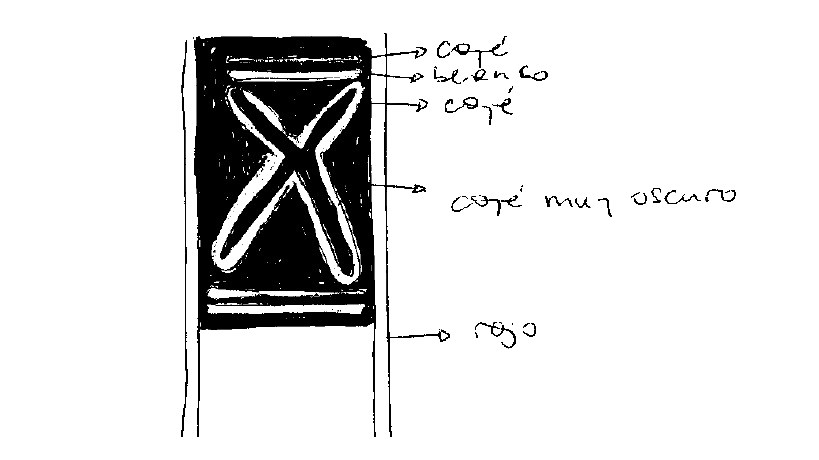 café
blanco
café
café muy oscuro
rojo